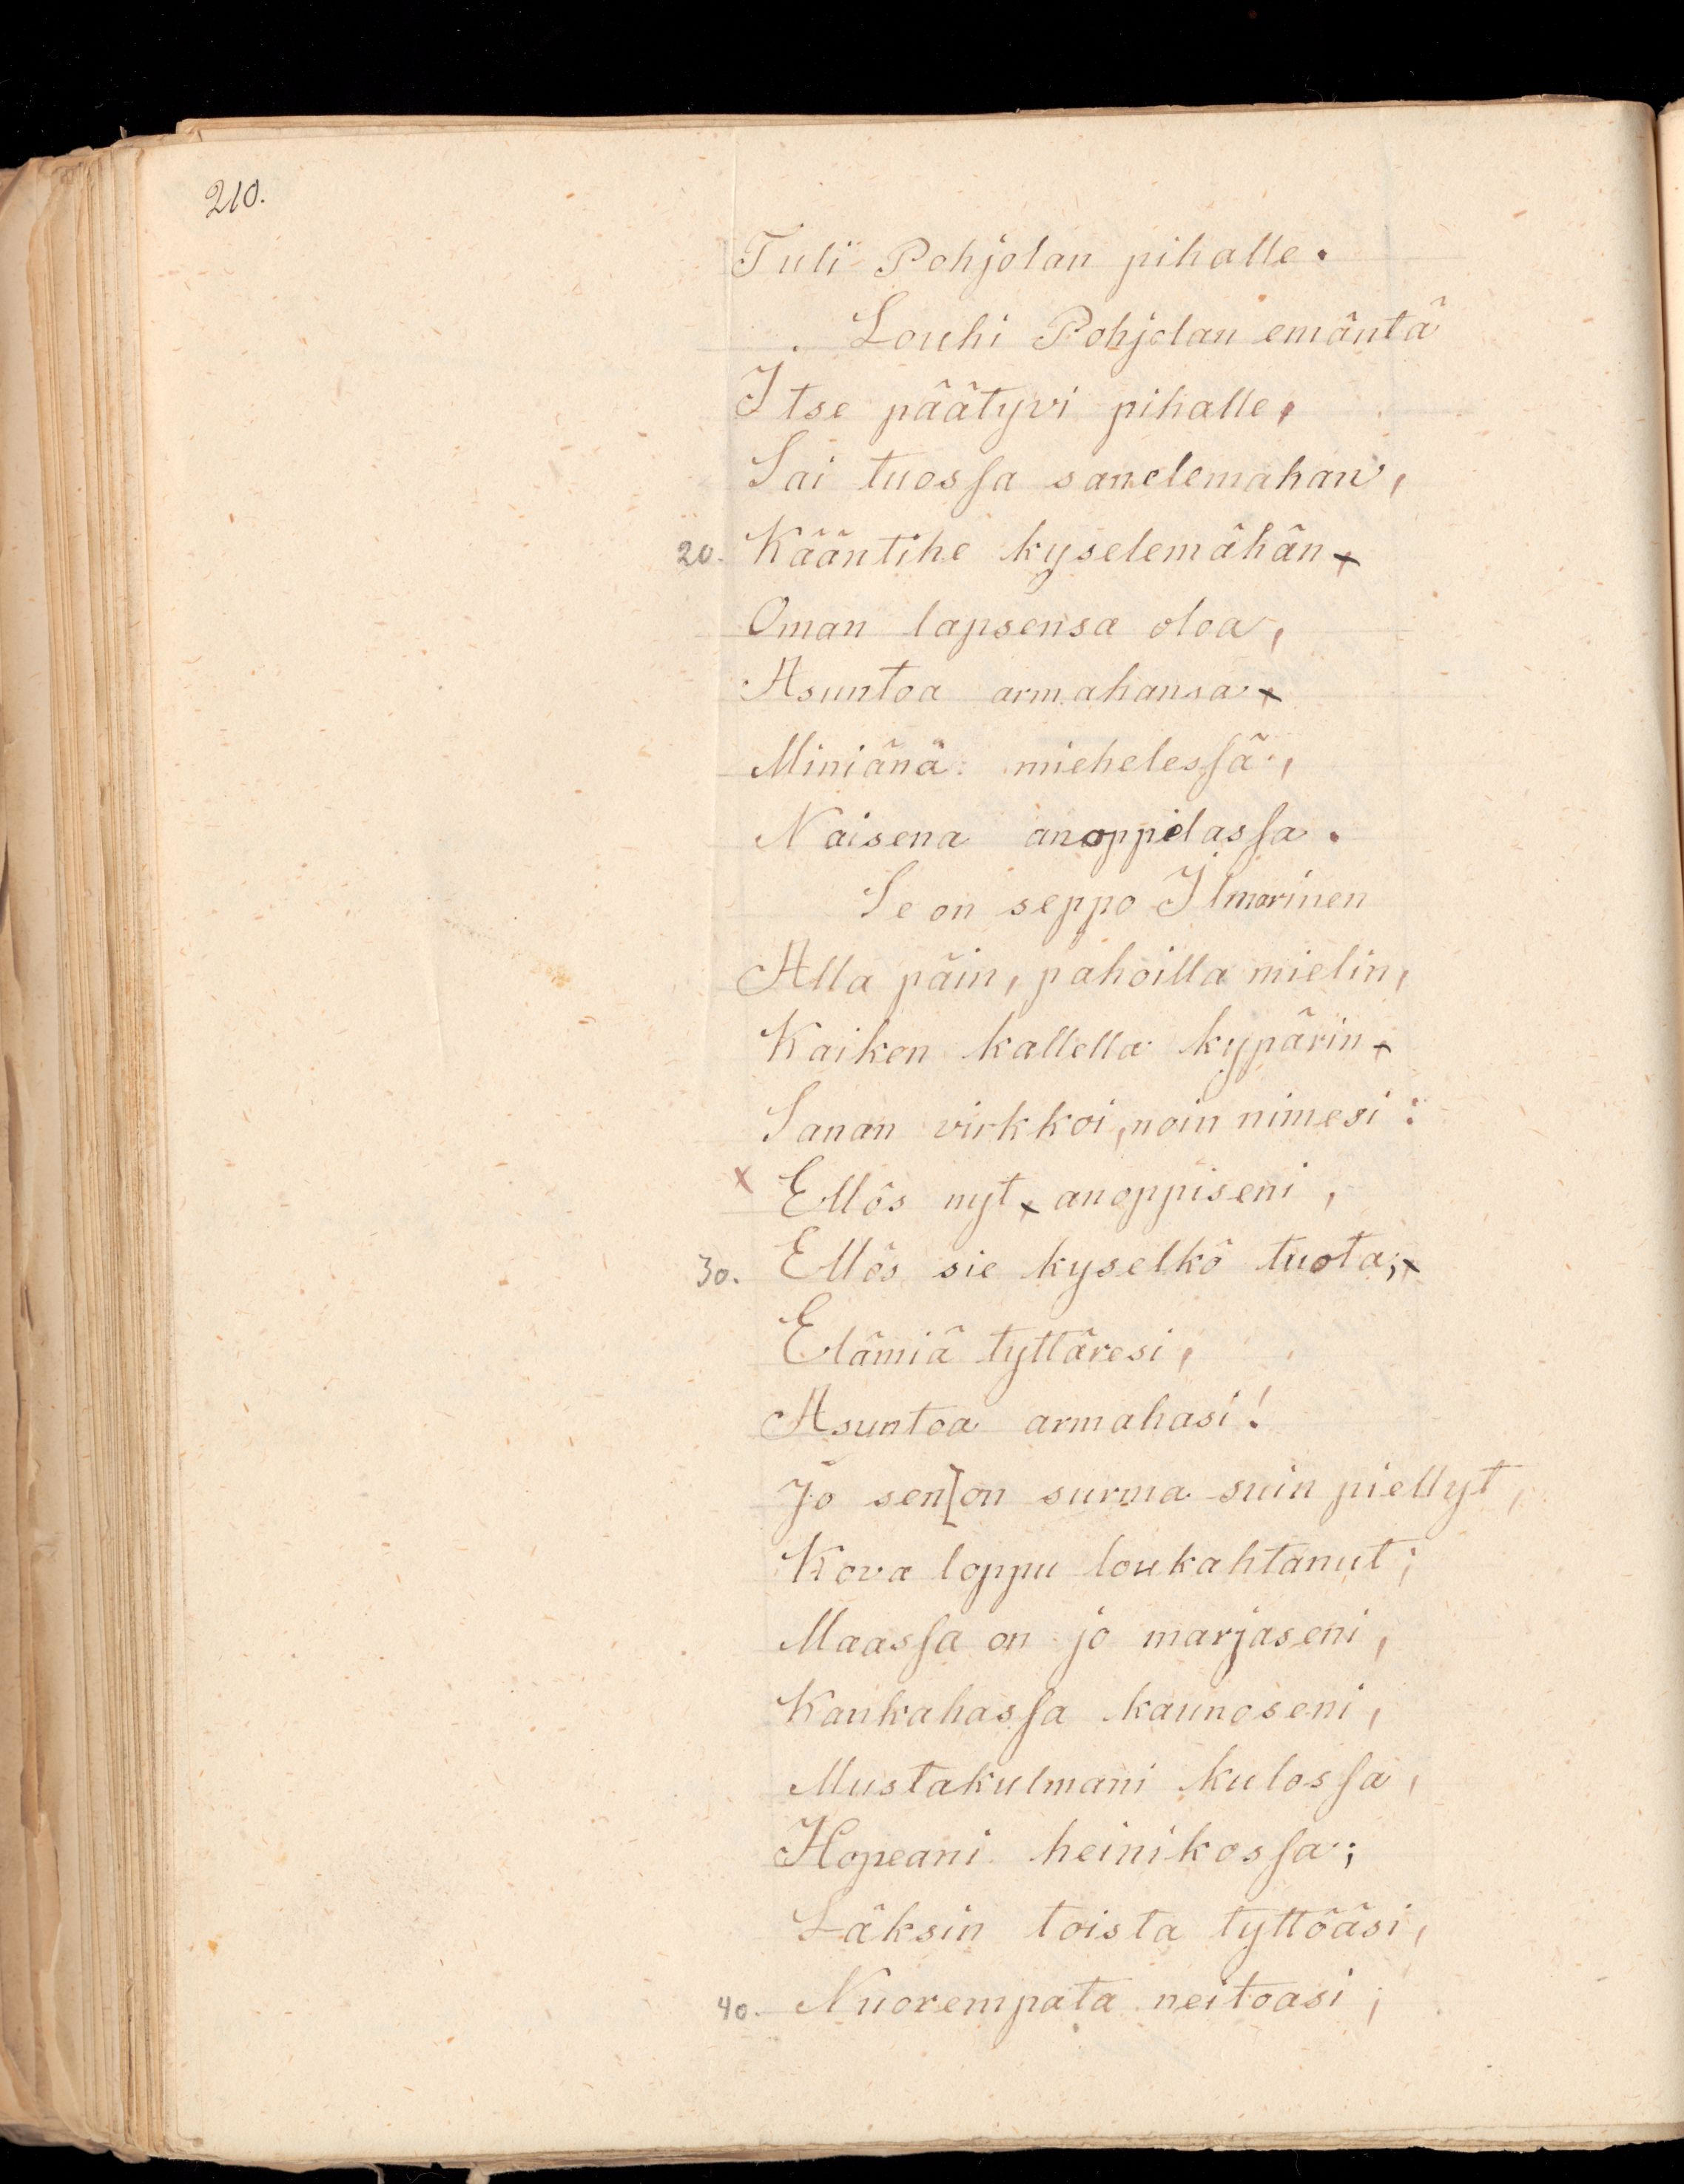 210.
Tuli Pohjolan pihalle.
Louhi Pohjolan emäntä
Itse päätyvi pihalle,
Sai tuossa sanelemahan,
20. Kääntihe kyselemähän
Oman lapsensa oloa,
Asuntoa armahansa
Miniänä miehelessä,
Naisena anoppilassa.
Se on seppo Ilmarinen
Alla päin, pahoilla mielin,
Kaiken kallella kypärin
Sanan virkkoi, noin nimesi:
x Ellös nyt anoppiseni,
30. Ellös sie kyselkö tuota;
Elämiä tyttäresi,
Asuntoa armahasi!
Jo sen[on surma suin piellyt,
Kova loppu loukahtanut;
Maassa on jo marjaseni,
Kankahassa kaunoseni,
Mustakulmani kulossa,
Hopeani heinikossa;
Läksin toista tyttöäsi,
40. Nuorempata neitoasi;